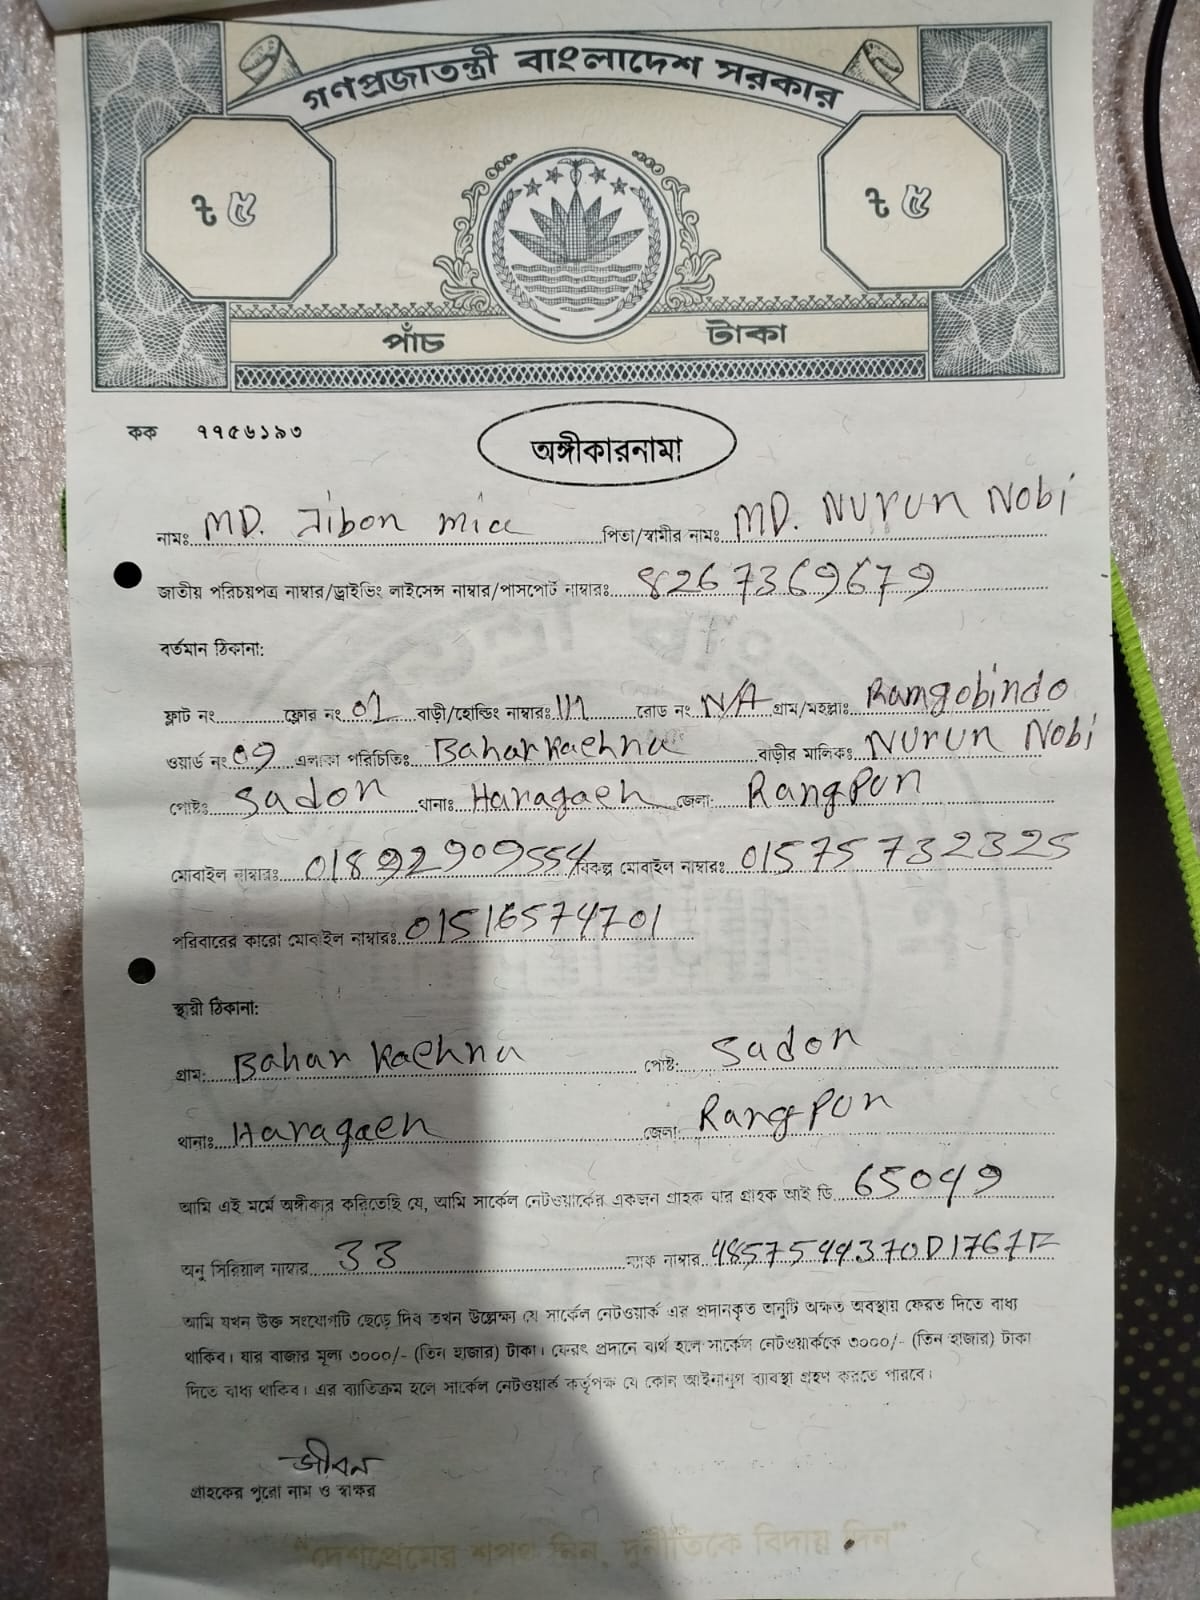 গণপ্রজাতন্ত্রী বাংলাদেশ সরকার
৳ ৫ ৳ ৫
পাঁচ টাকা
কক ৭৭৫৬১৯৩
অঙ্গীকারনামা
নামঃ MD. Jibon mia পিতা/স্বামীর নামঃ MD. NURUN NObi
জাতীয় পরিচয়পত্র নাম্বার/ড্রাইভিং লাইসেন্স নাম্বার/পাসপোর্ট নাম্বারঃ 8267369679
বর্তমান ঠিকানা:
ফ্লাট নং ফ্লোর নং 01 বাড়ী/হোল্ডিং নাম্বারঃ 111 রোড নং N/A গ্রাম/মহল্লাঃ Ramgobindo
ওয়ার্ড নং 09 এলাকা পরিচিতিঃ Bahar Kachna বাড়ীর মালিকঃ NURUN NObi
পোষ্টঃ Sadon থানাঃ Haragach জেলা: RangPur
মোবাইল নাম্বারঃ 01892909554 বিকল্প মোবাইল নাম্বারঃ 01575732325
পরিবারের কারো মোবাইল নাম্বারঃ 01516574701
স্থায়ী ঠিকানা:
গ্রাম: Bahar Kachna পোষ্ট: Sadon
থানাঃ Haragach জেলা: RangPur
আমি এই মর্মে অঙ্গীকার করিতেছি যে, আমি সার্কেল নেটওয়ার্কের একজন গ্রাহক যার গ্রাহক আই ডি 65049
অনু সিরিয়াল নাম্বার 33 ম্যাক নাম্বার 4857544370D1767F
আমি যখন উক্ত সংযোগটি ছেড়ে দিব তখন উল্লেক্ষ্য যে সার্কেল নেটওয়ার্ক এর প্রদানকৃত অনুটি অক্ষত অবস্থায় ফেরত দিতে বাধ্য
থাকিব। যার বাজার মূল্য ৩০০০/- (তিন হাজার) টাকা। ফেরৎ প্রদানে ব্যর্থ হলে সার্কেল নেটওয়ার্ককে ৩০০০/- (তিন হাজার) টাকা
দিতে বাধ্য থাকিব। এর ব্যাতিক্রম হলে সার্কেল নেটওয়ার্ক কর্তৃপক্ষ যে কোন আইনানুগ ব্যাবস্থা গ্রহণ করতে পারবে।
জীবন
গ্রাহকের পুরো নাম ও স্বাক্ষর
"দেশপ্রেমের শপথ নিন, দুর্নীতিকে বিদায় দিন"